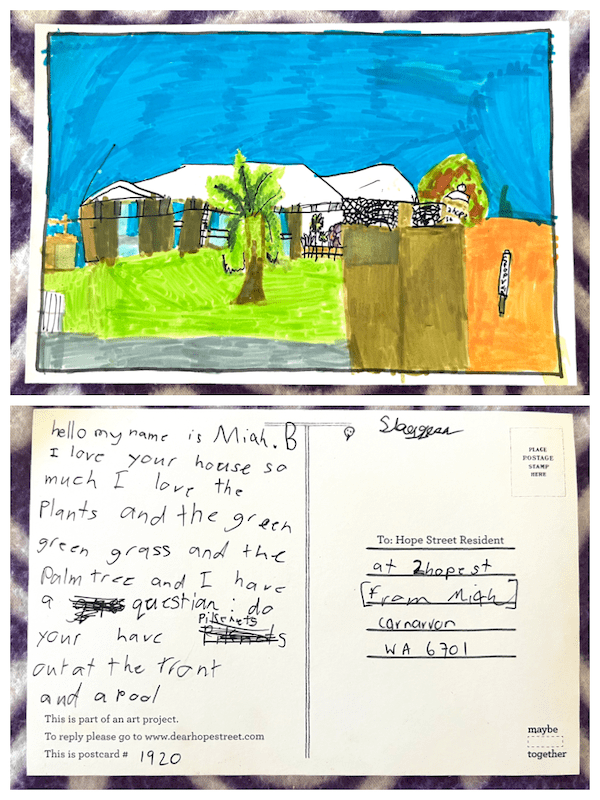 hello my name is Miah. B
I love your house so
much I love the
Plants and the green
green grass and the
Palm tree and I have
a questian: do
your have Pikenets
out at the front
and a pool
This is part of an art project.
To reply please go to www.dearhopestreet.com
This is postcard # 1920
PLACE
POSTAGE
STAMP
HERE
To: Hope Street Resident
at 2hope st
From Miah
Carnarvon
WA 6701
maybe
together